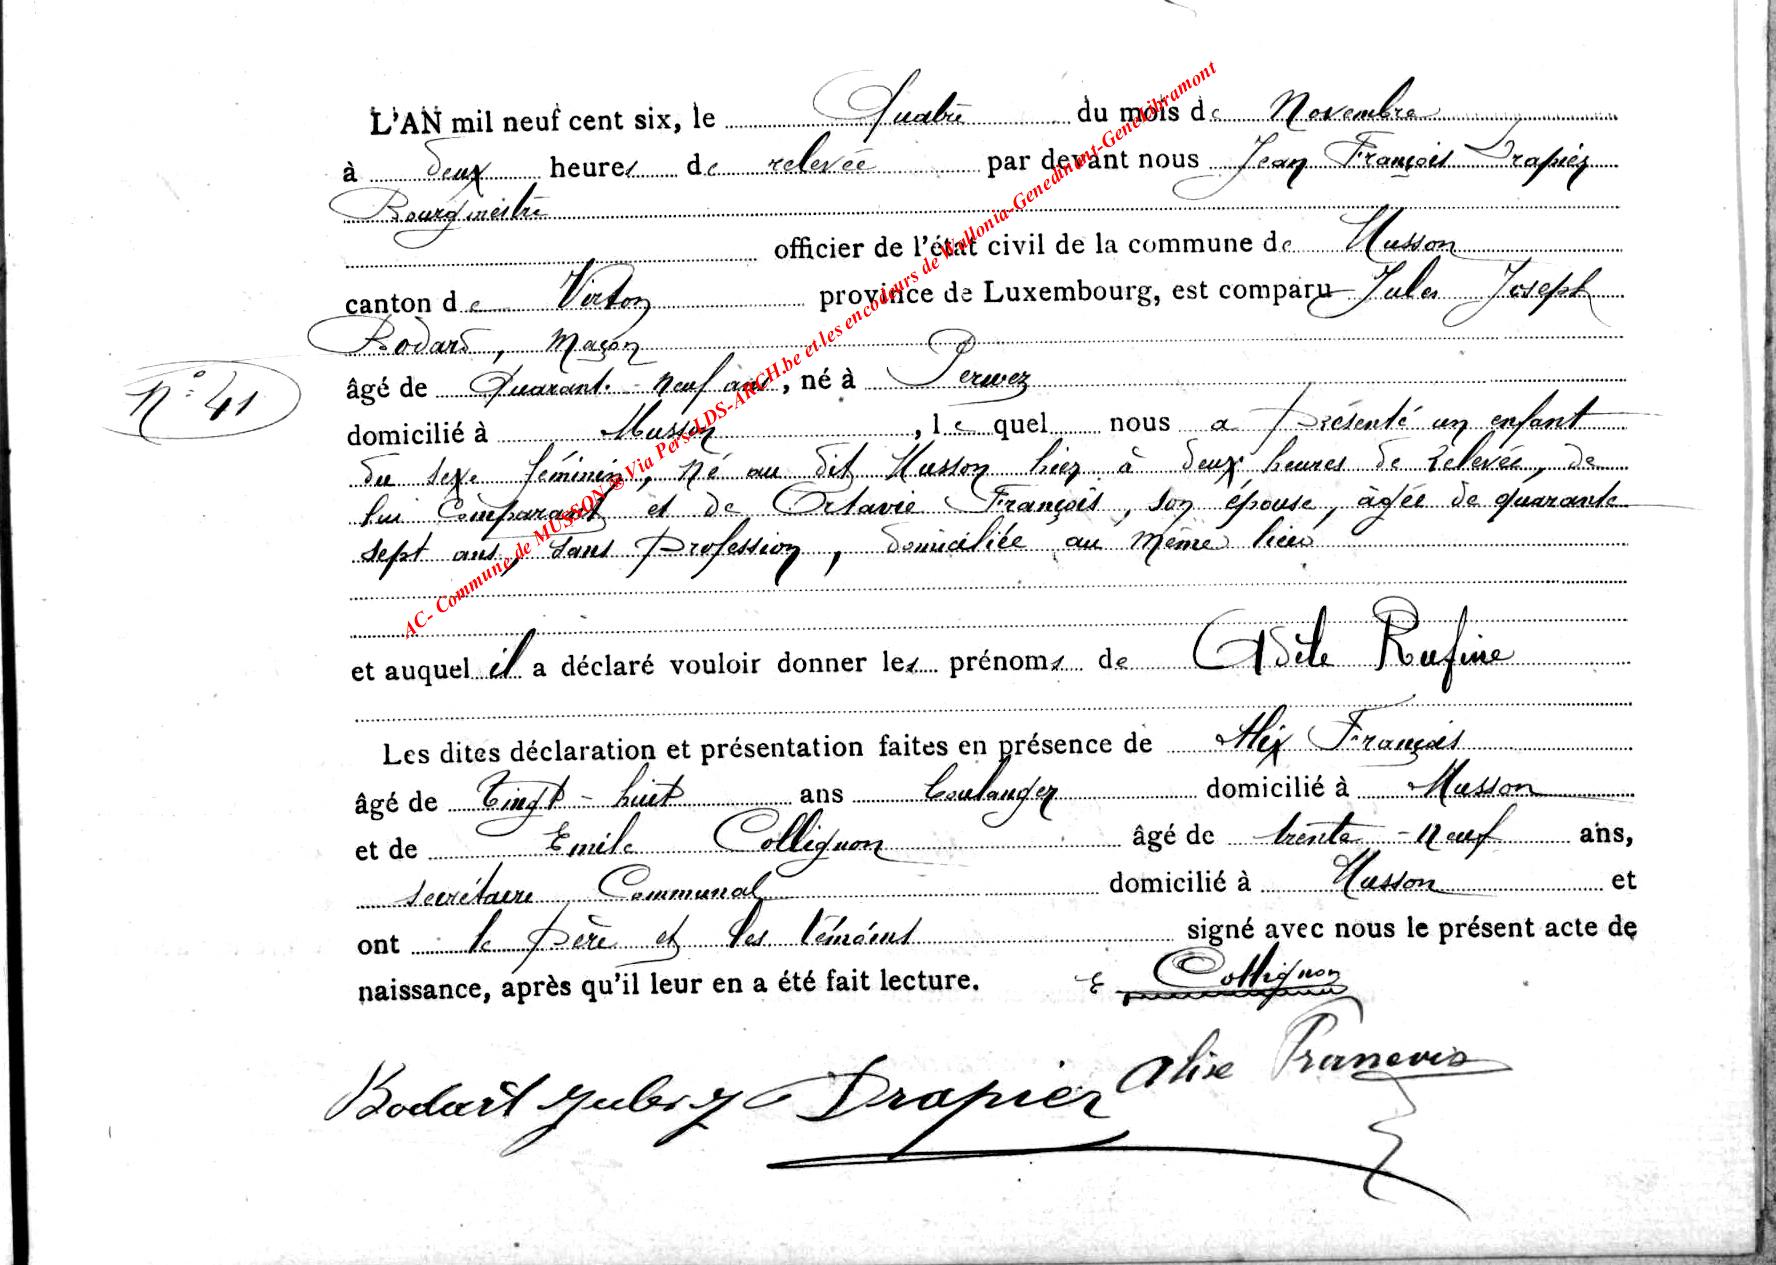 L'AN mil neuf cent six, le Quatre du mois de Novembre
à deux heures de relevée par devant nous Jean François Drapier
Bourgmestre
officier de l'état civil de la commune de Musson
canton de Virton province de Luxembourg, est comparu Jules Joseph
Bodard, Maçon
N° 41
âgé de Quarante-neuf ans, né à Perwez
domicilié à Musson, lequel nous a présenté un enfant
du sexe féminin, né au dit Musson hier à deux heures de relevée, de
lui Comparant et de Octavie François, son épouse, âgée de quarante
sept ans, sans profession, domiciliée au même lieu
et auquel il a déclaré vouloir donner les prénoms de Adèle Rufine
Les dites déclaration et présentation faites en présence de Alix François
âgé de vingt-huit ans boulanger domicilié à Musson
et de Emile Collignon âgé de trente-neuf ans,
secrétaire Communal domicilié à Musson et
ont le père et les témoins signé avec nous le présent acte de
naissance, après qu'il leur en a été fait lecture. E Collignon
Bodart Jules J Drapier Alixe Francois
AC- Commune de MUSSON ® Via Pers-LDS-ARCH.be et les encodeurs de Wallonia-Genedinant-Genelibramont